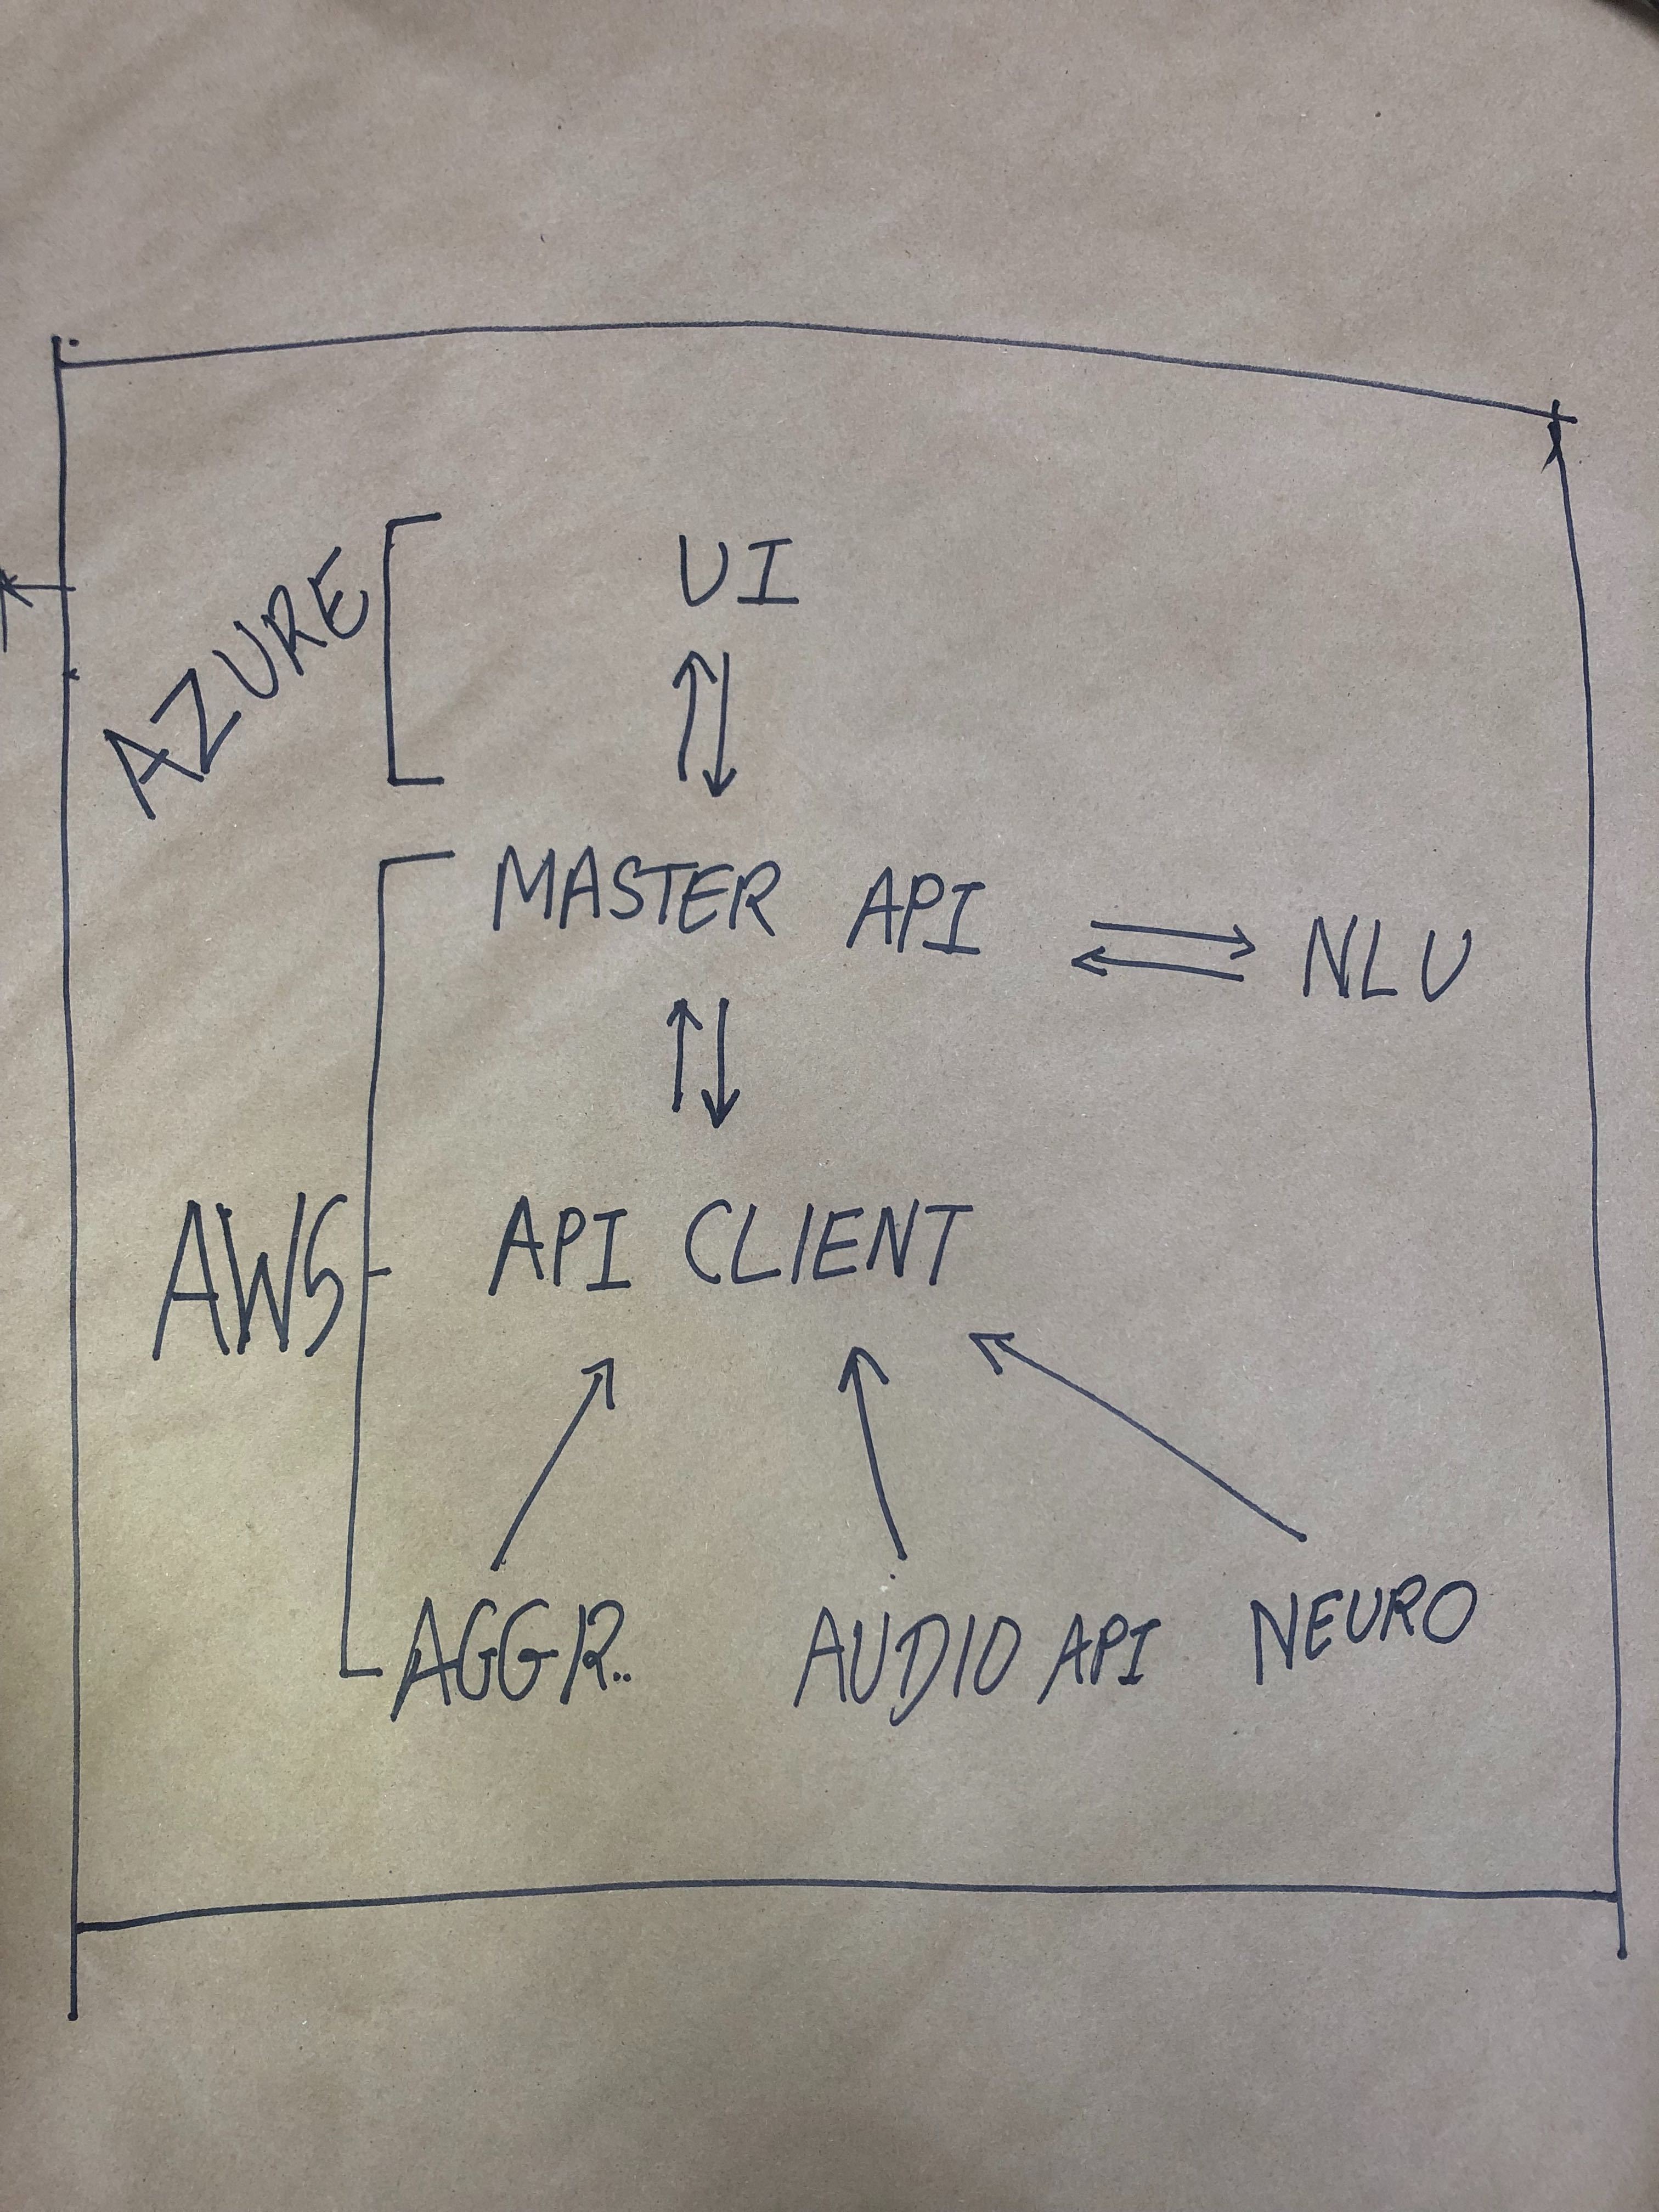 UI
AZURE
MASTER API
NLU
AWS
API CLIENT
AGGR..
AUDIO API
NEURO